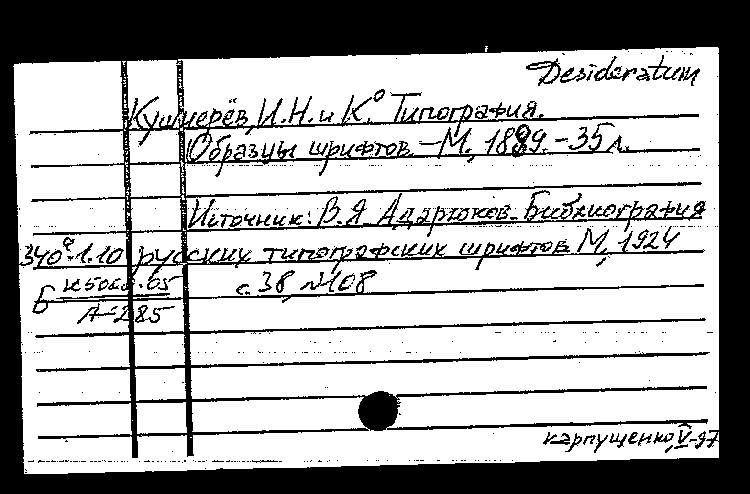 Desideratum
Кушнерёв, И.Н. и К.° Типография.
Образцы шрифтов. - М., 1889. - 35 л.
Источник: В.Я. Адарюков. Библиография
340.1.10 русских типографских шрифтов. М., 1924
Б с. 38, №108
А-285
карпущенко, V-97